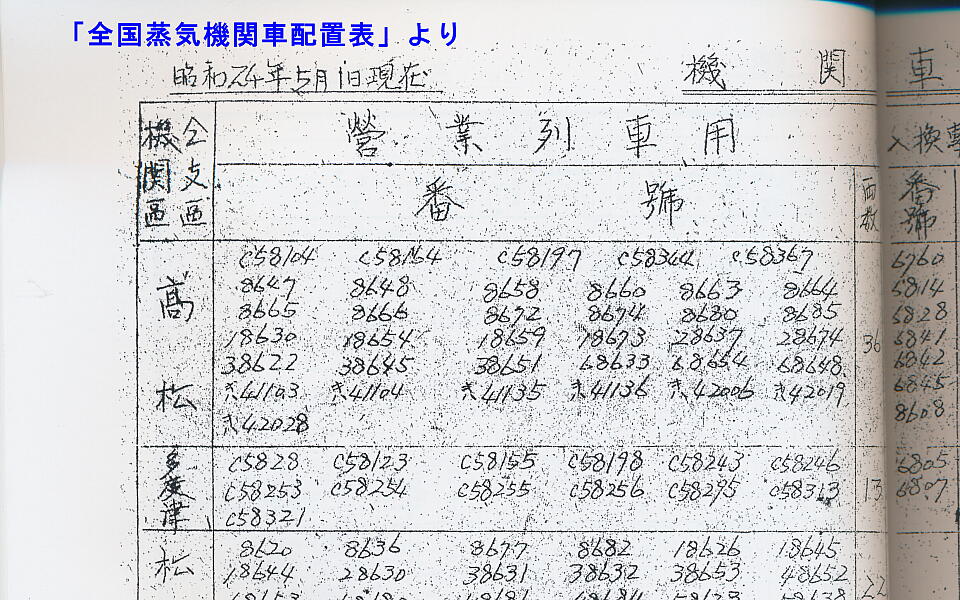 「全国蒸気機関車配置表」より
昭和24年5月1日現在 機関車
機関區 仝支區 營業列車用 入換車
番號 両数 番號
高松 C58104 C58164 C58197 C58344 C58367 6760
8647 8648 8658 8660 8663 8664 5814
8665 8666 8672 8674 8680 8685 5828
18630 18654 18659 18673 28637 28674 36 6841
38622 38645 38651 68633 68654 68648 6842
き41103 き41104 き41135 き41136 き42006 き42019 6845
き42028 8608
多度津 C5828 C58123 C58155 C58198 C58243 C58246 6805
C58253 C58254 C58255 C58256 C58295 C58313 13 6807
C58321
松 8620 8636 8677 8682 18626 18645
18644 28630 38631 38632 38653 48652 22